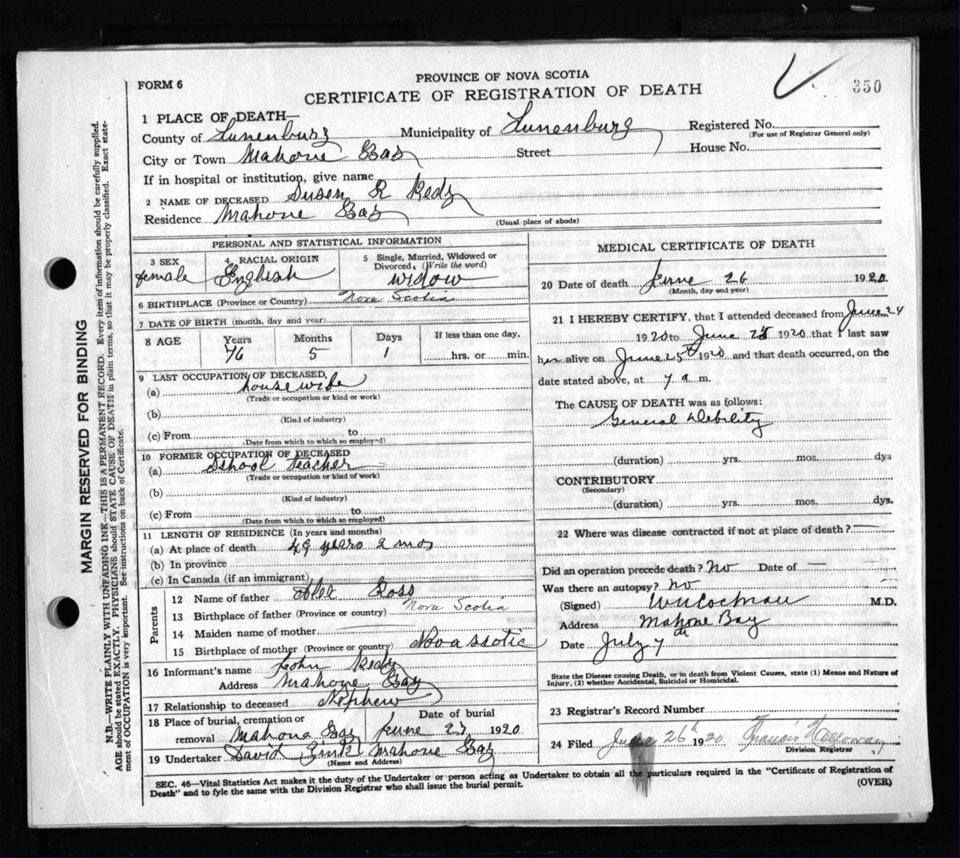 350
PROVINCE OF NOVA SCOTIA
FORM 6
CERTIFICATE OF REGISTRATION OF DEATH
MARGIN RESERVED FOR BINDING
N.B.—WRITE PLAINLY WITH UNFADING INK—THIS IS A PERMANENT RECORD. Every item of information should be carefully supplied.
AGE should be stated EXACTLY. PHYSICIANS should STATE CAUSE OF DEATH in plain terms, so that it may be properly classified. Exact state-
ment of OCCUPATION is very important. See instructions on back of Certificate.
1 PLACE OF DEATH—
County of Lunenburg Municipality of Lunenburg Registered No.
(For use of Registrar General only)
City or Town Mahone Bay Street House No.
If in hospital or institution, give name
2 NAME OF DECEASED Susen R Redy
Residence Mahone Bay
(Usual place of abode)
PERSONAL AND STATISTICAL INFORMATION
3 SEX female
4 RACIAL ORIGIN English
5 Single, Married, Widowed or Divorced, (Write the word) widow
6 BIRTHPLACE (Province or Country) Nova Scotia
7 DATE OF BIRTH (month, day and year)
8 AGE Years Months Days If less than one day,
76 5 1 hrs. or min.
9 LAST OCCUPATION OF DECEASED
(a) housewife
(Trade or occupation or kind or work)
(b)
(Kind of industry)
(c) From to
(Date from which to which so employed)
10 FORMER OCCUPATION OF DECEASED
(a) School Teacher
(Trade or occupation or kind of work)
(b)
(Kind of industry)
(c) From to
(Date from which to which so employed)
11 LENGTH OF RESIDENCE (In years and months)
(a) At place of death 49 years 2 mos
(b) In province
(c) In Canada (if an immigrant)
Parents
12 Name of father Alex Ross
13 Birthplace of father (Province or country) Nova Scotia
14 Maiden name of mother
15 Birthplace of mother (Province or country) Nova Scotia
16 Informant's name John Redy
Address Mahone Bay
17 Relationship to deceased Nephew
18 Place of burial, cremation or Date of burial
removal Mahone Bay June 27 1920
19 Undertaker David Zink Mahone Bay
(Name and Address)
MEDICAL CERTIFICATE OF DEATH
20 Date of death June 26 1920
(Month, day and year)
21 I HEREBY CERTIFY, that I attended deceased from June 24
1920 to June 25 1920 that I last saw
her alive on June 25th 1920 and that death occurred, on the
date stated above, at 7 a m.
The CAUSE OF DEATH was as follows:
General Debility
(duration) yrs. mos. dys
CONTRIBUTORY
(Secondary)
(duration) yrs. mos. dys.
22 Where was disease contracted if not at place of death? —
Did an operation precede death? No Date of —
Was there an autopsy? No
(Signed) M.D.
Address Mahone Bay
Date July 7th
State the Disease causing Death, or in death from Violent Causes, state (1) Means and Nature of
Injury, (2) whether Accidental, Suicidal or Homicidal.
23 Registrar's Record Number
24 Filed June 26th 1920 Francis Holloway
Division Registrar
SEC. 46—Vital Statistics Act makes it the duty of the Undertaker or person acting as Undertaker to obtain all the particulars required in the "Certificate of Registration of
Death" and to fyle the same with the Division Registrar who shall issue the burial permit. (OVER)